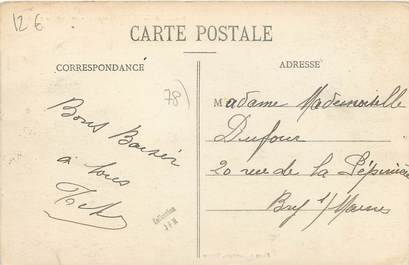 12 €
CARTE POSTALE
CORRESPONDANCE
ADRESSE
78
Madame Mademoiselle
Dufour
20 rue de la Pépinière
Bry s/ Marne
Bons Baiser
à tous
Collection